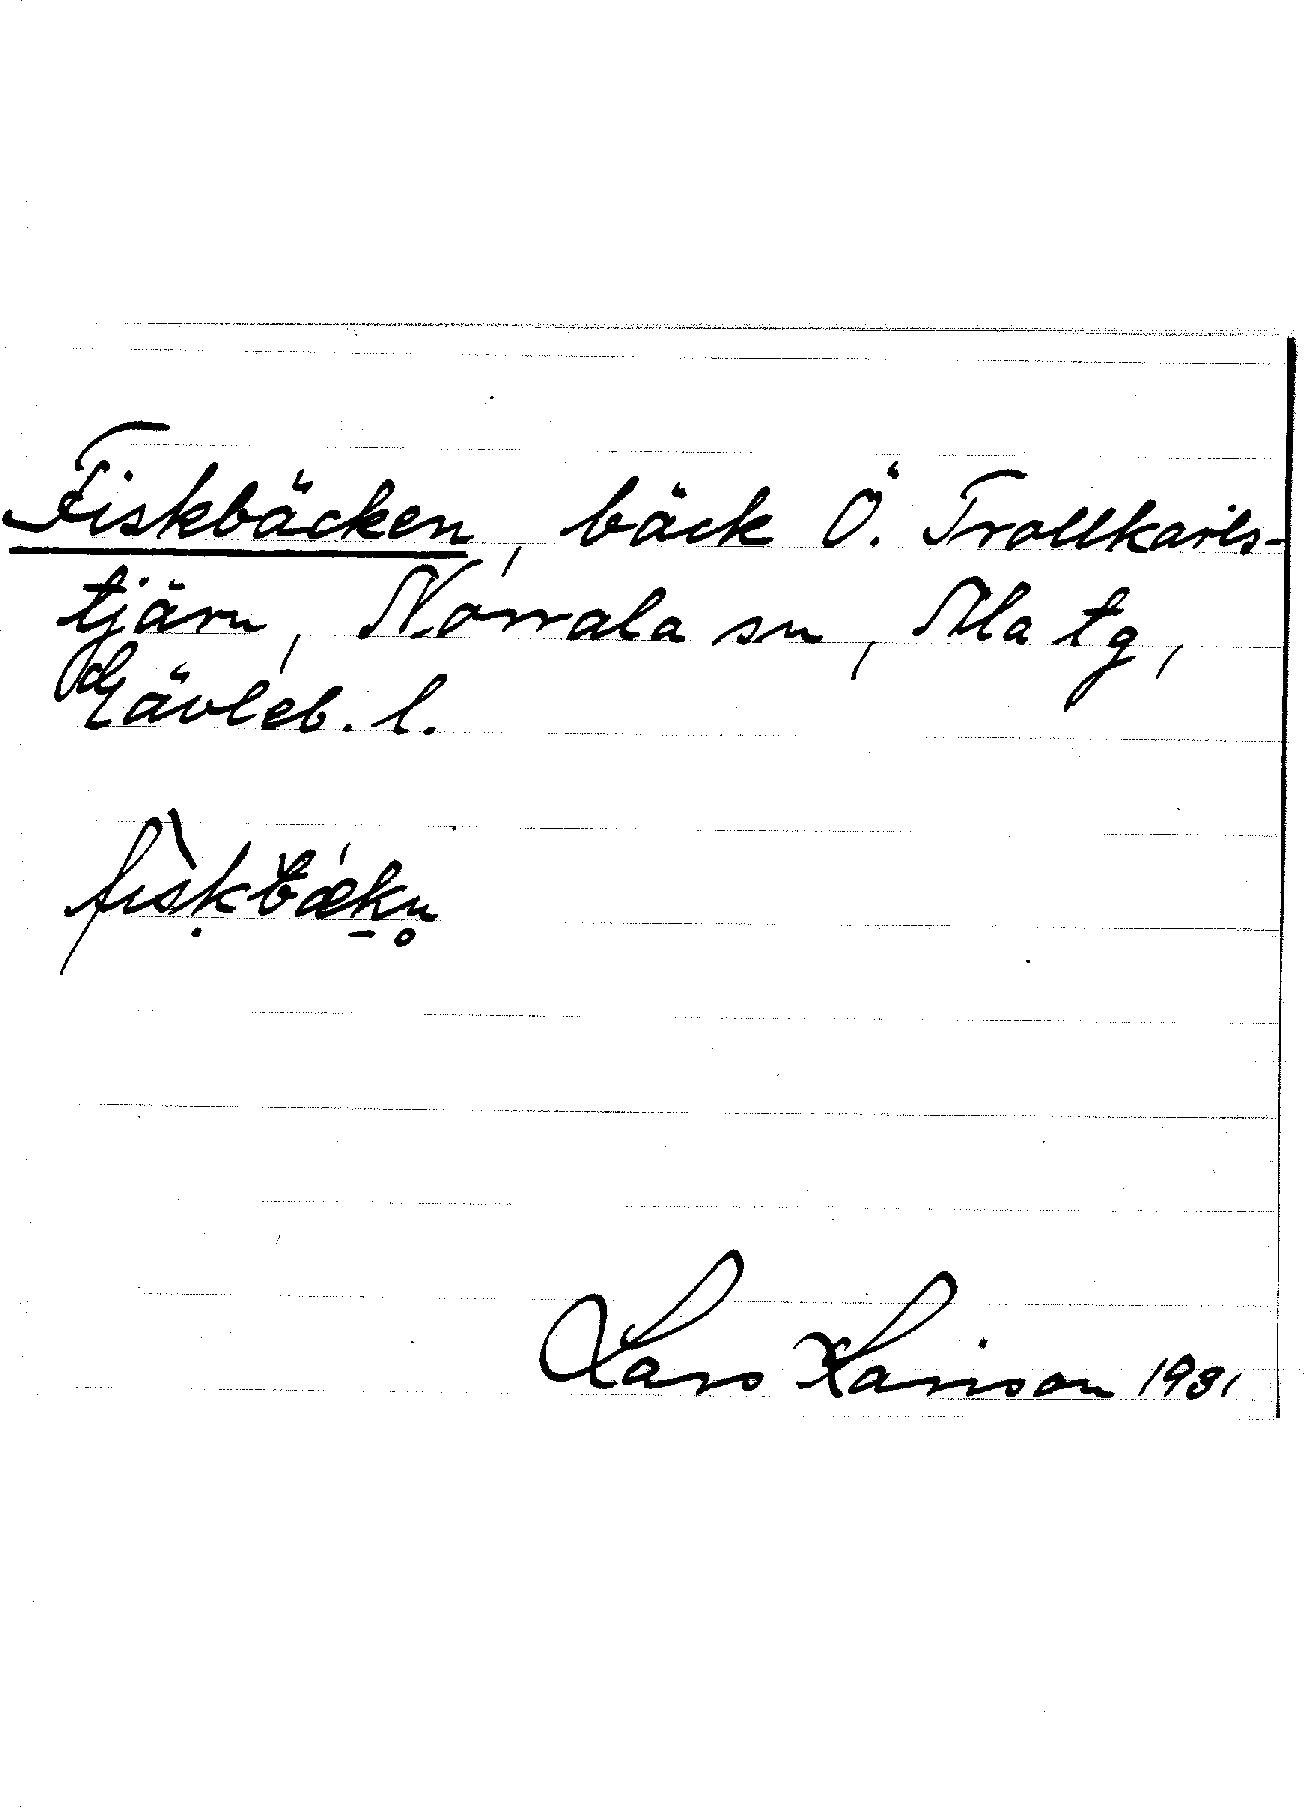 Fiskbäcken, bäck Ö. Trollkarls-
tjärn, Norrala sn, Ala tg,
Gävleb. l.
Lars Larsson 1931